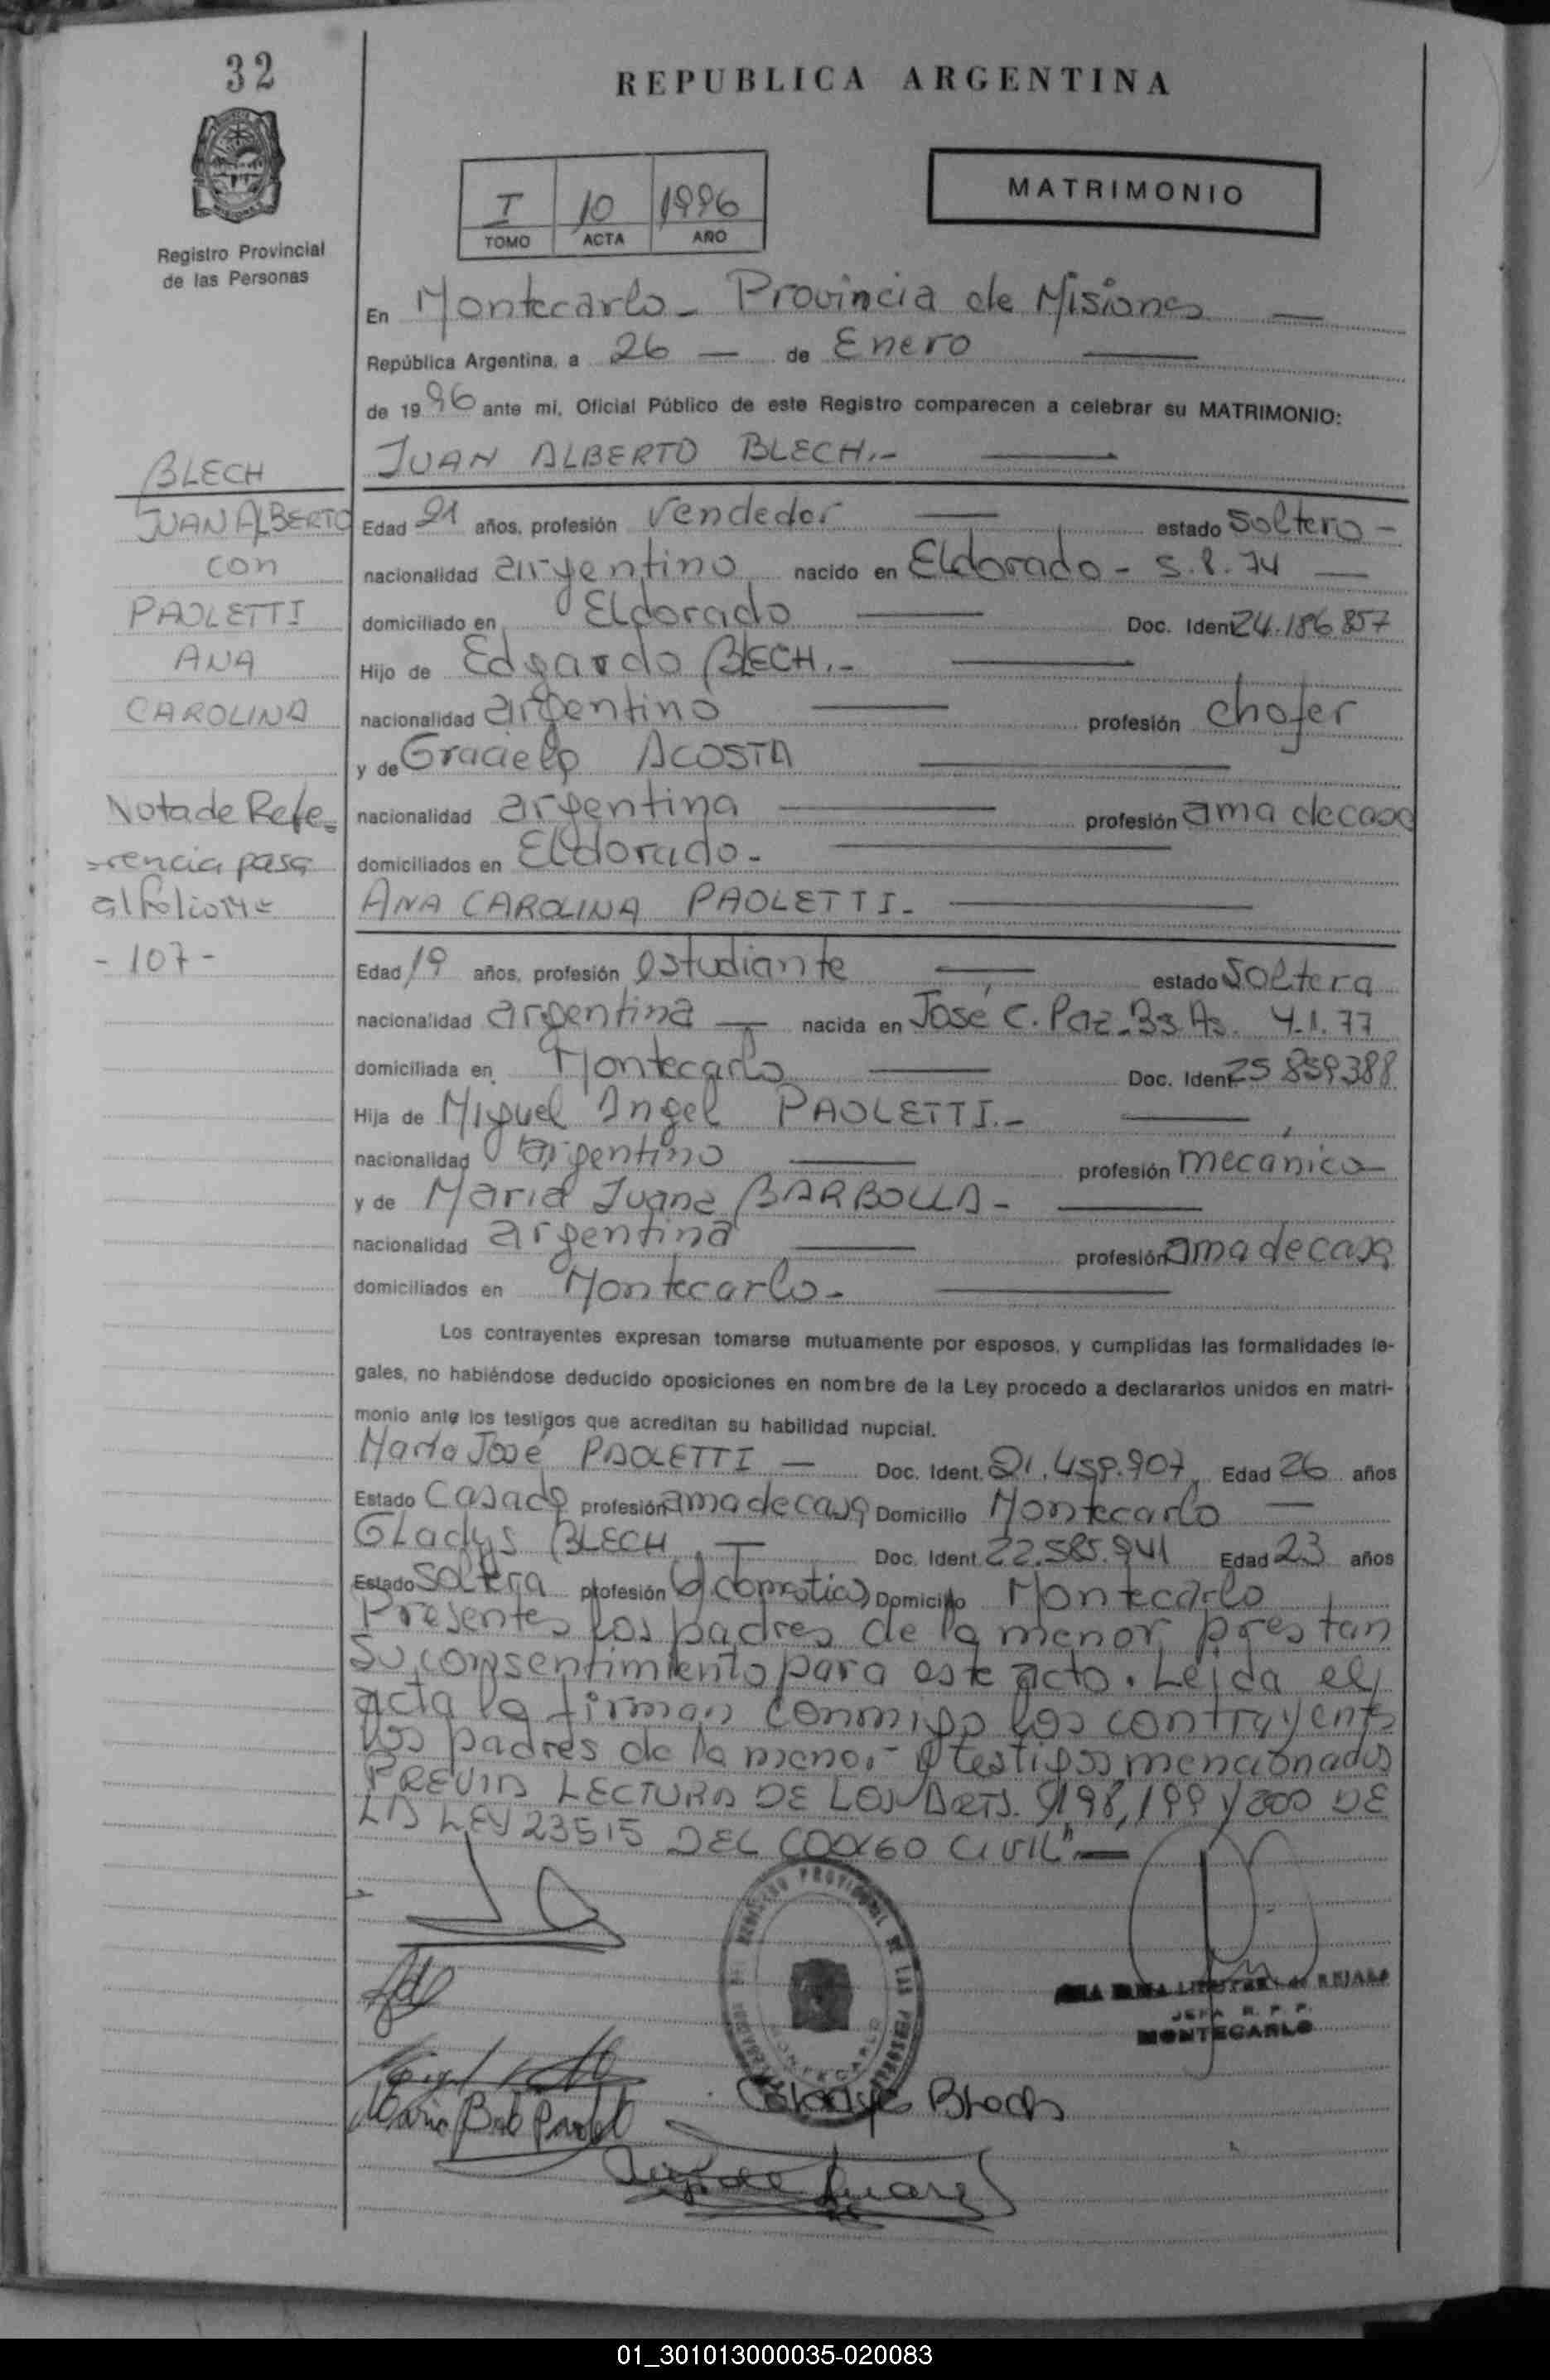 32
REPUBLICA ARGENTINA
MATRIMONIO
I 10 1996
TOMO ACTA AÑO
Registro Provincial
de las Personas
En Montecarlo - Provincia de Misiones
República Argentina, a 26 de Enero
de 1996 ante mi, Oficial Público de este Registro comparecen a celebrar su MATRIMONIO:
JUAN ALBERTO BLECH.-
BLECH
JUAN ALBERTO
con
PAOLETTI
ANA
CAROLINA
Nota de Refe-
rencia pasa
al folio Nº
- 107 -
Edad 21 años, profesión vendedor estado soltero -
nacionalidad argentino nacido en Eldorado - 5.8.74
domiciliado en Eldorado Doc. Ident 24.186.857
Hijo de Edgardo BLECH.-
nacionalidad argentino profesión chofer
y de Graciela ACOSTA
nacionalidad argentina profesión ama de casa
domiciliados en Eldorado -
ANA CAROLINA PAOLETTI -
Edad 19 años, profesión estudiante estado soltera
nacionalidad argentina nacida en José C. Paz - Bs As. 4.1.77
domiciliada en Montecarlo Doc. Ident 25 859388
Hija de Miguel Angel PAOLETTI.-
nacionalidad argentino profesión mecánico
y de Maria Juana BARBOLLA -
nacionalidad argentina profesión ama de casa
domiciliados en Montecarlo -
Los contrayentes expresan tomarse mutuamente por esposos, y cumplidas las formalidades le-
gales, no habiéndose deducido oposiciones en nombre de la Ley procedo a declararlos unidos en matri-
monio ante los testigos que acreditan su habilidad nupcial.
María José PAOLETTI Doc. Ident. 21.459.907 Edad 26 años
Estado Casada profesión ama de casa Domicilio Montecarlo
Gladys BLECH Doc. Ident 22.585.941 Edad 23 años
Estado soltera profesión domestica Domicilio Montecarlo
Presentes los padres de la menor prestan
su consentimiento para este acto. Leída el
acta la firman conmigo los contrayentes
los padres de la menor y testigos mencionados
PREVIA LECTURA DE LOS ARTS. 198, 199 y 200 DE
LA LEY 23515 DEL CODIGO CIVIL"
REGISTRO PROVINCIAL DE LAS PERSONAS
MONTECARLO
JEFA R. P. P.
MONTECARLO
Gladys Blech
01_301013000035-020083